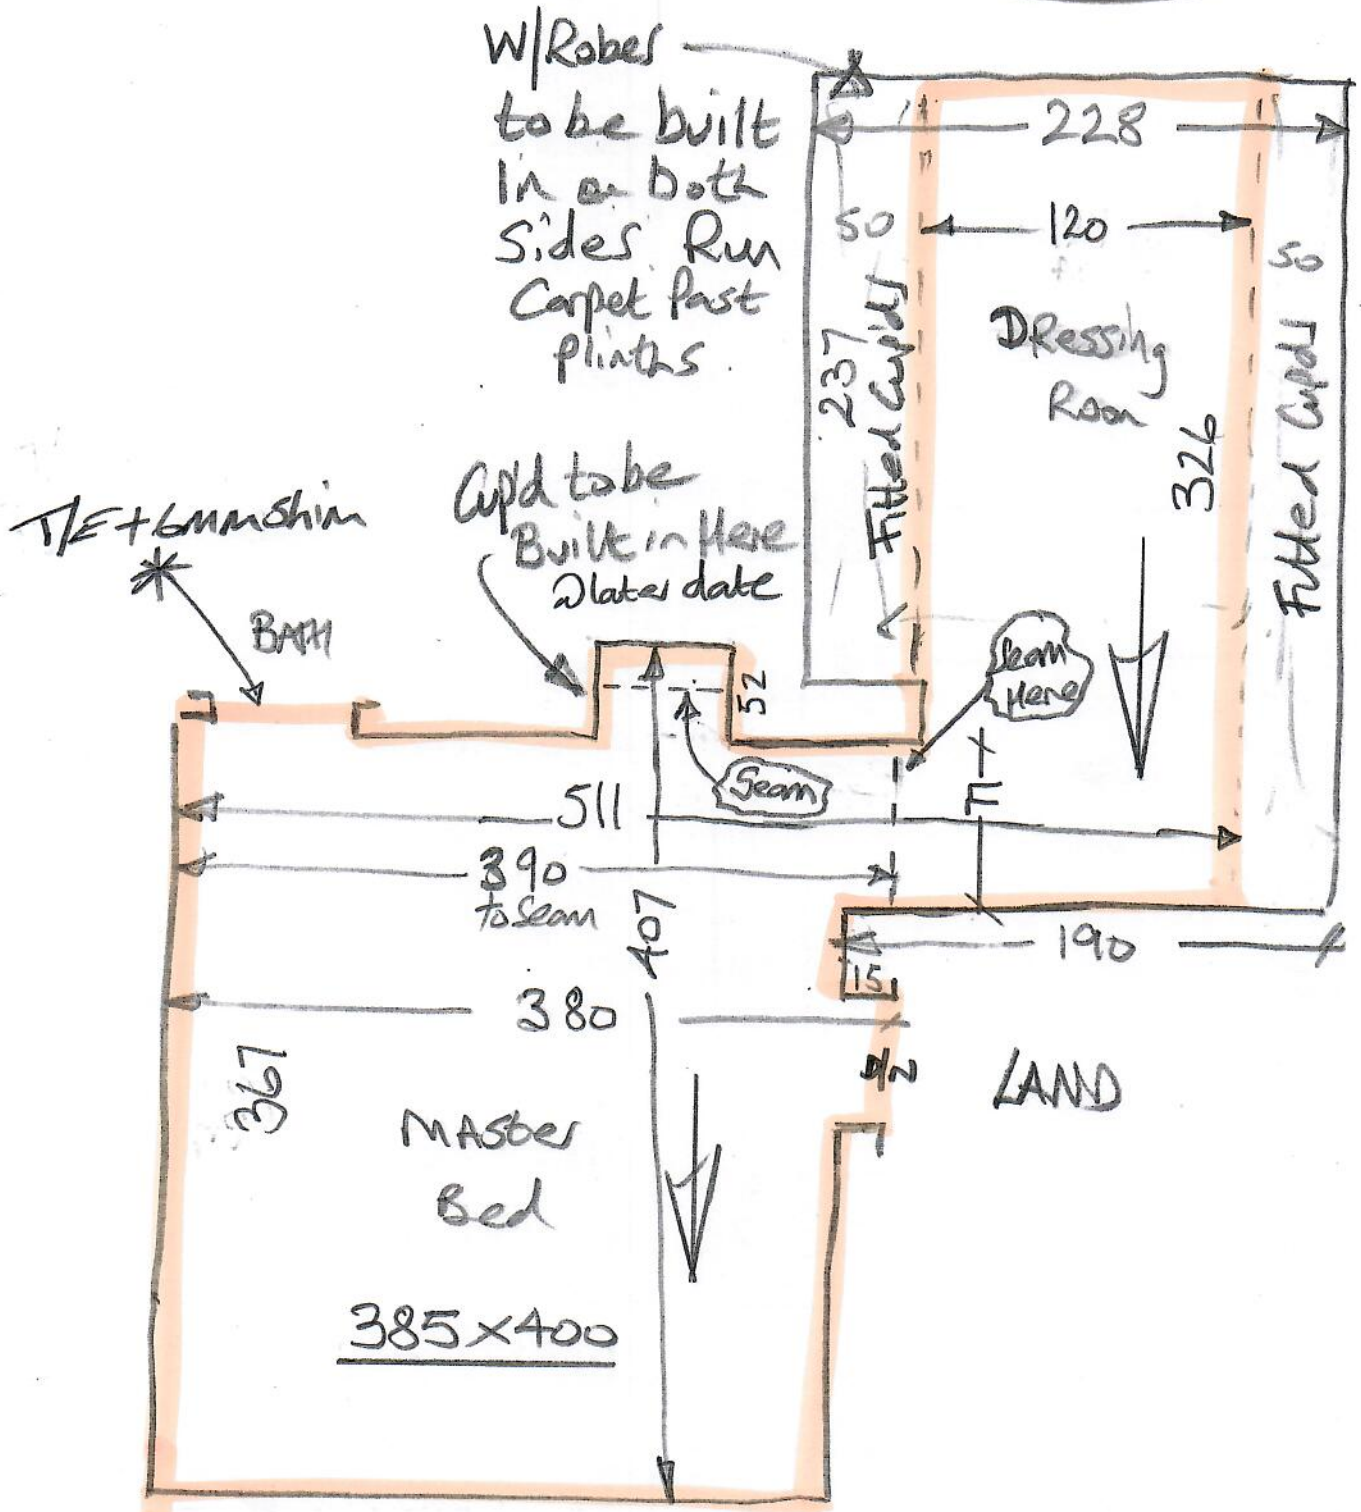 W/Robes
to be built
In on both
Sides Run
Carpet Past
Plinths.
228
50
120
50
Dressing
Room
237
Fitted Cupds
326
Fitted Cupds
T/E + 6mm Shim
BATH
Cup'd to be
Built in Here
@ later date
Seam
Here
52
Seam
511
390
to Seam
407
190
15
380
367
LAND
Master
Bed
385 x 400